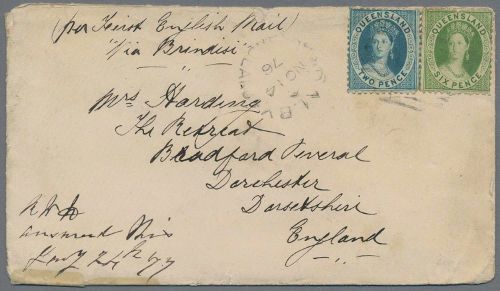 (per First English Mail)
"via Brindisi"
QUEENSLAND
TWO PENCE
QUEENSLAND
SIX PENCE
NO 14
76
Mrs Harding
The Retreat
Bradford Peveral
Dorchester
Dorsetshire
England
answered this
Jany 24th 77